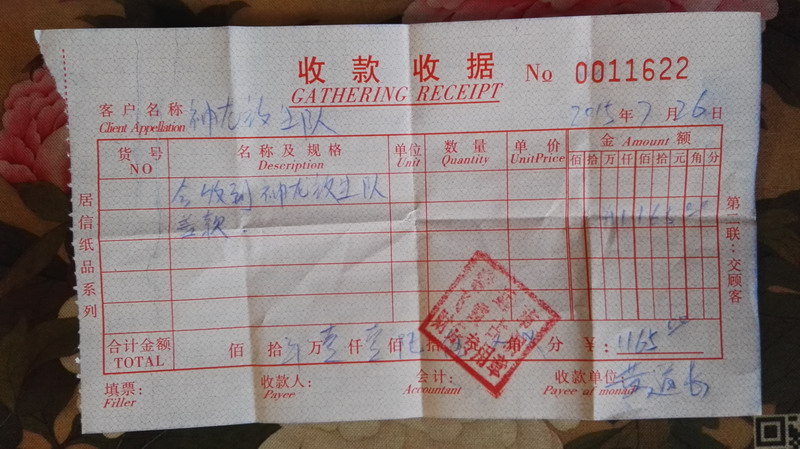 收款收据 No 0011622
GATHERING RECEIPT
客户名称 神龙放生队 2015年7月26日
Client Appellation
货号 名称及规格 单位 数量 单价 金 Amount 额
NO Description Unit Quantity UnitPrice 佰拾万仟佰拾元角分
今收到神龙放生队
善款.
合计金额 佰 拾 万壹仟壹佰 拾 角 分 ¥: 1165
TOTAL
填票: 收款人: 会计: 收款单位
Filler Payee Accountant Payee of monad
居信纸品系列
第二联:交顾客